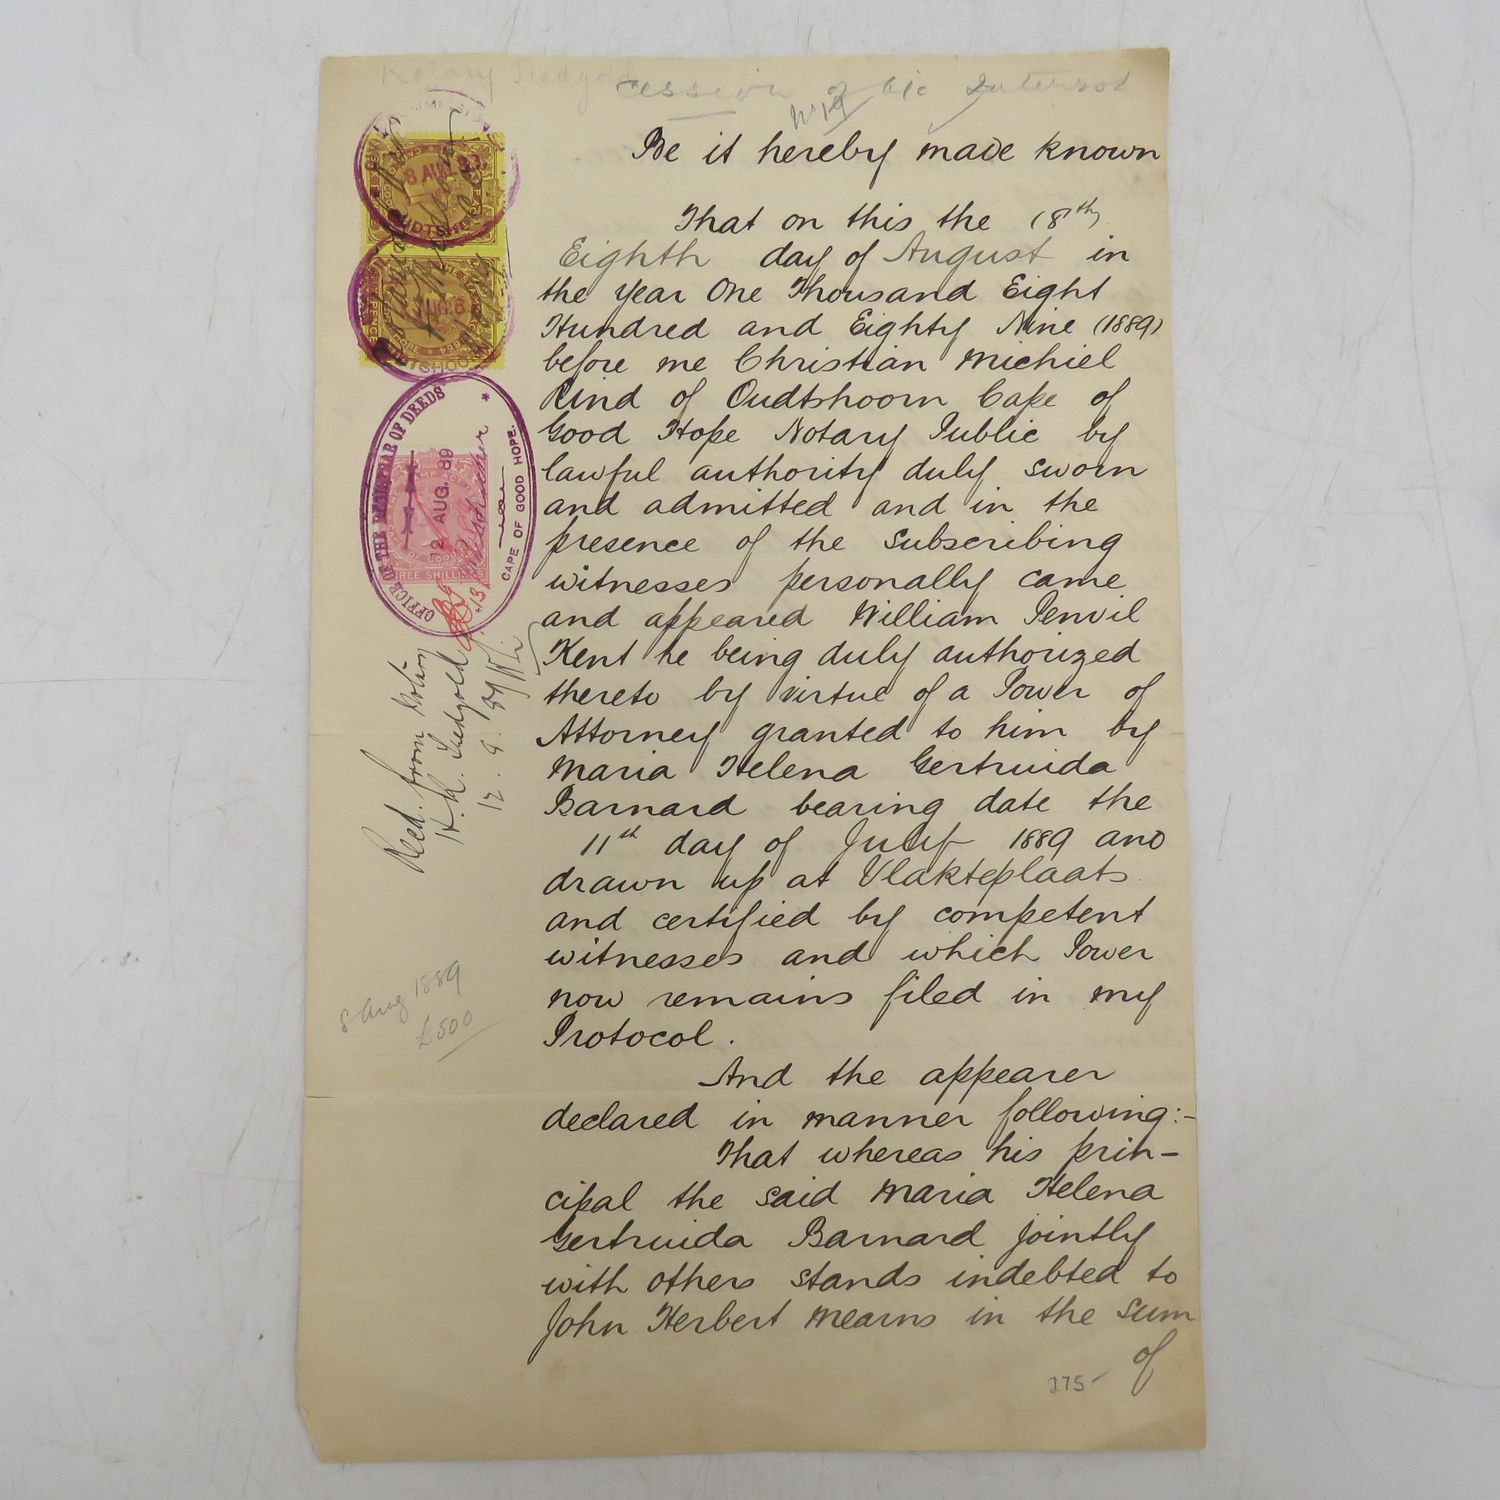 Notary
Cession of Interest
Be it hereby made known
That on this the (8th)
Eighth day of August in
the year One Thousand Eight
Hundred and Eighty Nine (1889)
before me Christian Michiel
Lind of Oudtshoorn Cape of
Good Hope Notary Public by
lawful authority duly sworn
and admitted and in the
presence of the subscribing
witnesses personally came
and appeared William Penvil
Kent he being duly authorized
thereto by virtue of a Power of
Attorney granted to him by
Maria Helena Gertruida
Barnard bearing date the
11th day of July 1889 and
drawn up at Vlakteplaats
and certified by competent
witnesses and which Power
now remains filed in my
Protocol.
And the appearer
declared in manner following:-
That whereas his prin-
cipal the said Maria Helena
Gertruida Barnard jointly
with others stands indebted to
John Herbert Means in the sum
of
275-
8 AUG
OFFICE OF THE REGISTRAR OF DEEDS
12 AUG. 89
CAPE OF GOOD HOPE.
THREE SHILLINGS
Recd. from Notary
12. 8. 89
8 Aug 1889
£500